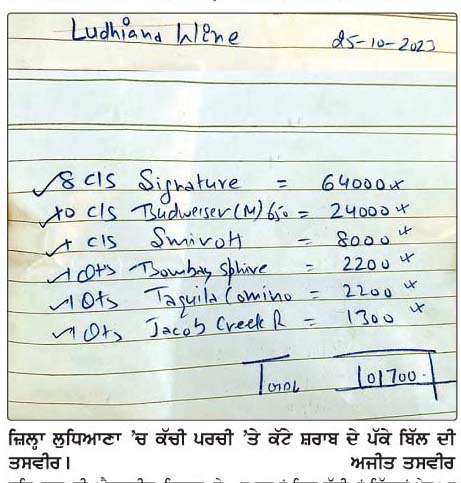 Ludhiana Wine
25-10-2023
8 C/S Signature = 64000x
10 C/S Budweiser (M) 650 = 24000x
1 C/S Smiroff = 8000x
1 Qts Bombay Sphire = 2200x
1 Qts Taquila Comino = 2200x
1 Qts Jacob Creek R = 1300x
Total 101700
ਜ਼ਿਲ੍ਹਾ ਲੁਧਿਆਣਾ 'ਚ ਕੱਚੀ ਪਰਚੀ 'ਤੇ ਕੱਟੇ ਸ਼ਰਾਬ ਦੇ ਪੱਕੇ ਬਿੱਲ ਦੀ
ਤਸਵੀਰ। ਅਜੀਤ ਤਸਵੀਰ